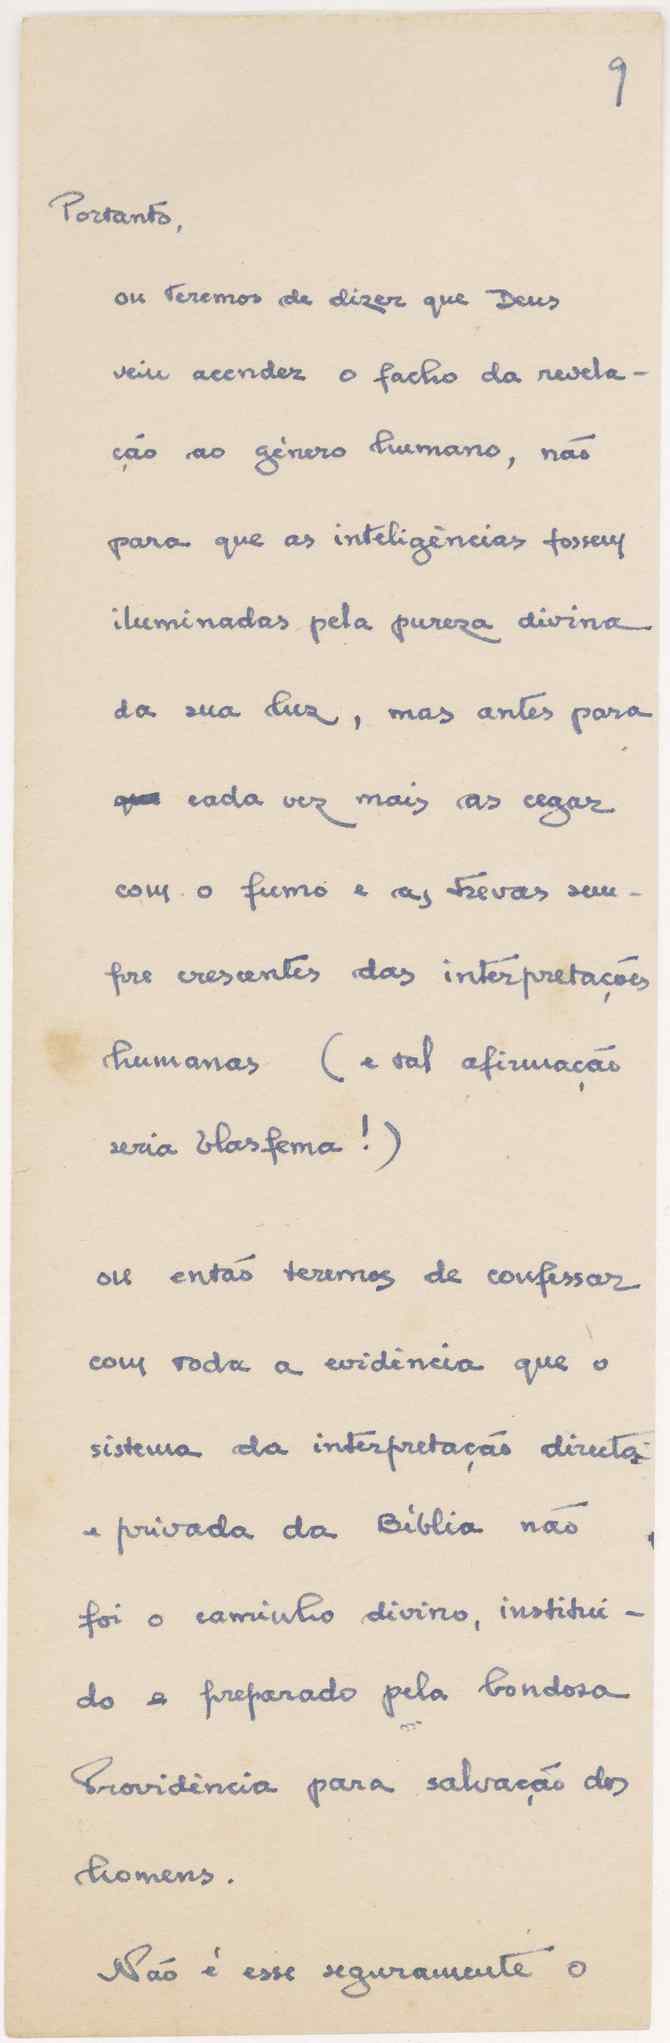 9
Portanto,
ou teremos de dizer que Deus
veiu acender o facho da revela-
ção ao género humano, não
para que as inteligências fossem
iluminadas pela pureza divina
da sua luz, mas antes para
que cada vez mais as cegar
com o fumo e as trevas sem-
pre crescentes das interpretações
humanas (e tal afirmação
seria blasfema!)
ou então teremos de confessar
com toda a evidência que o
sistema da interpretação directa
e privada da Bíblia não
foi o caminho divino, instituí-
do e preparado pela bondosa
Providência para salvação dos
homens.
Não é esse seguramente o